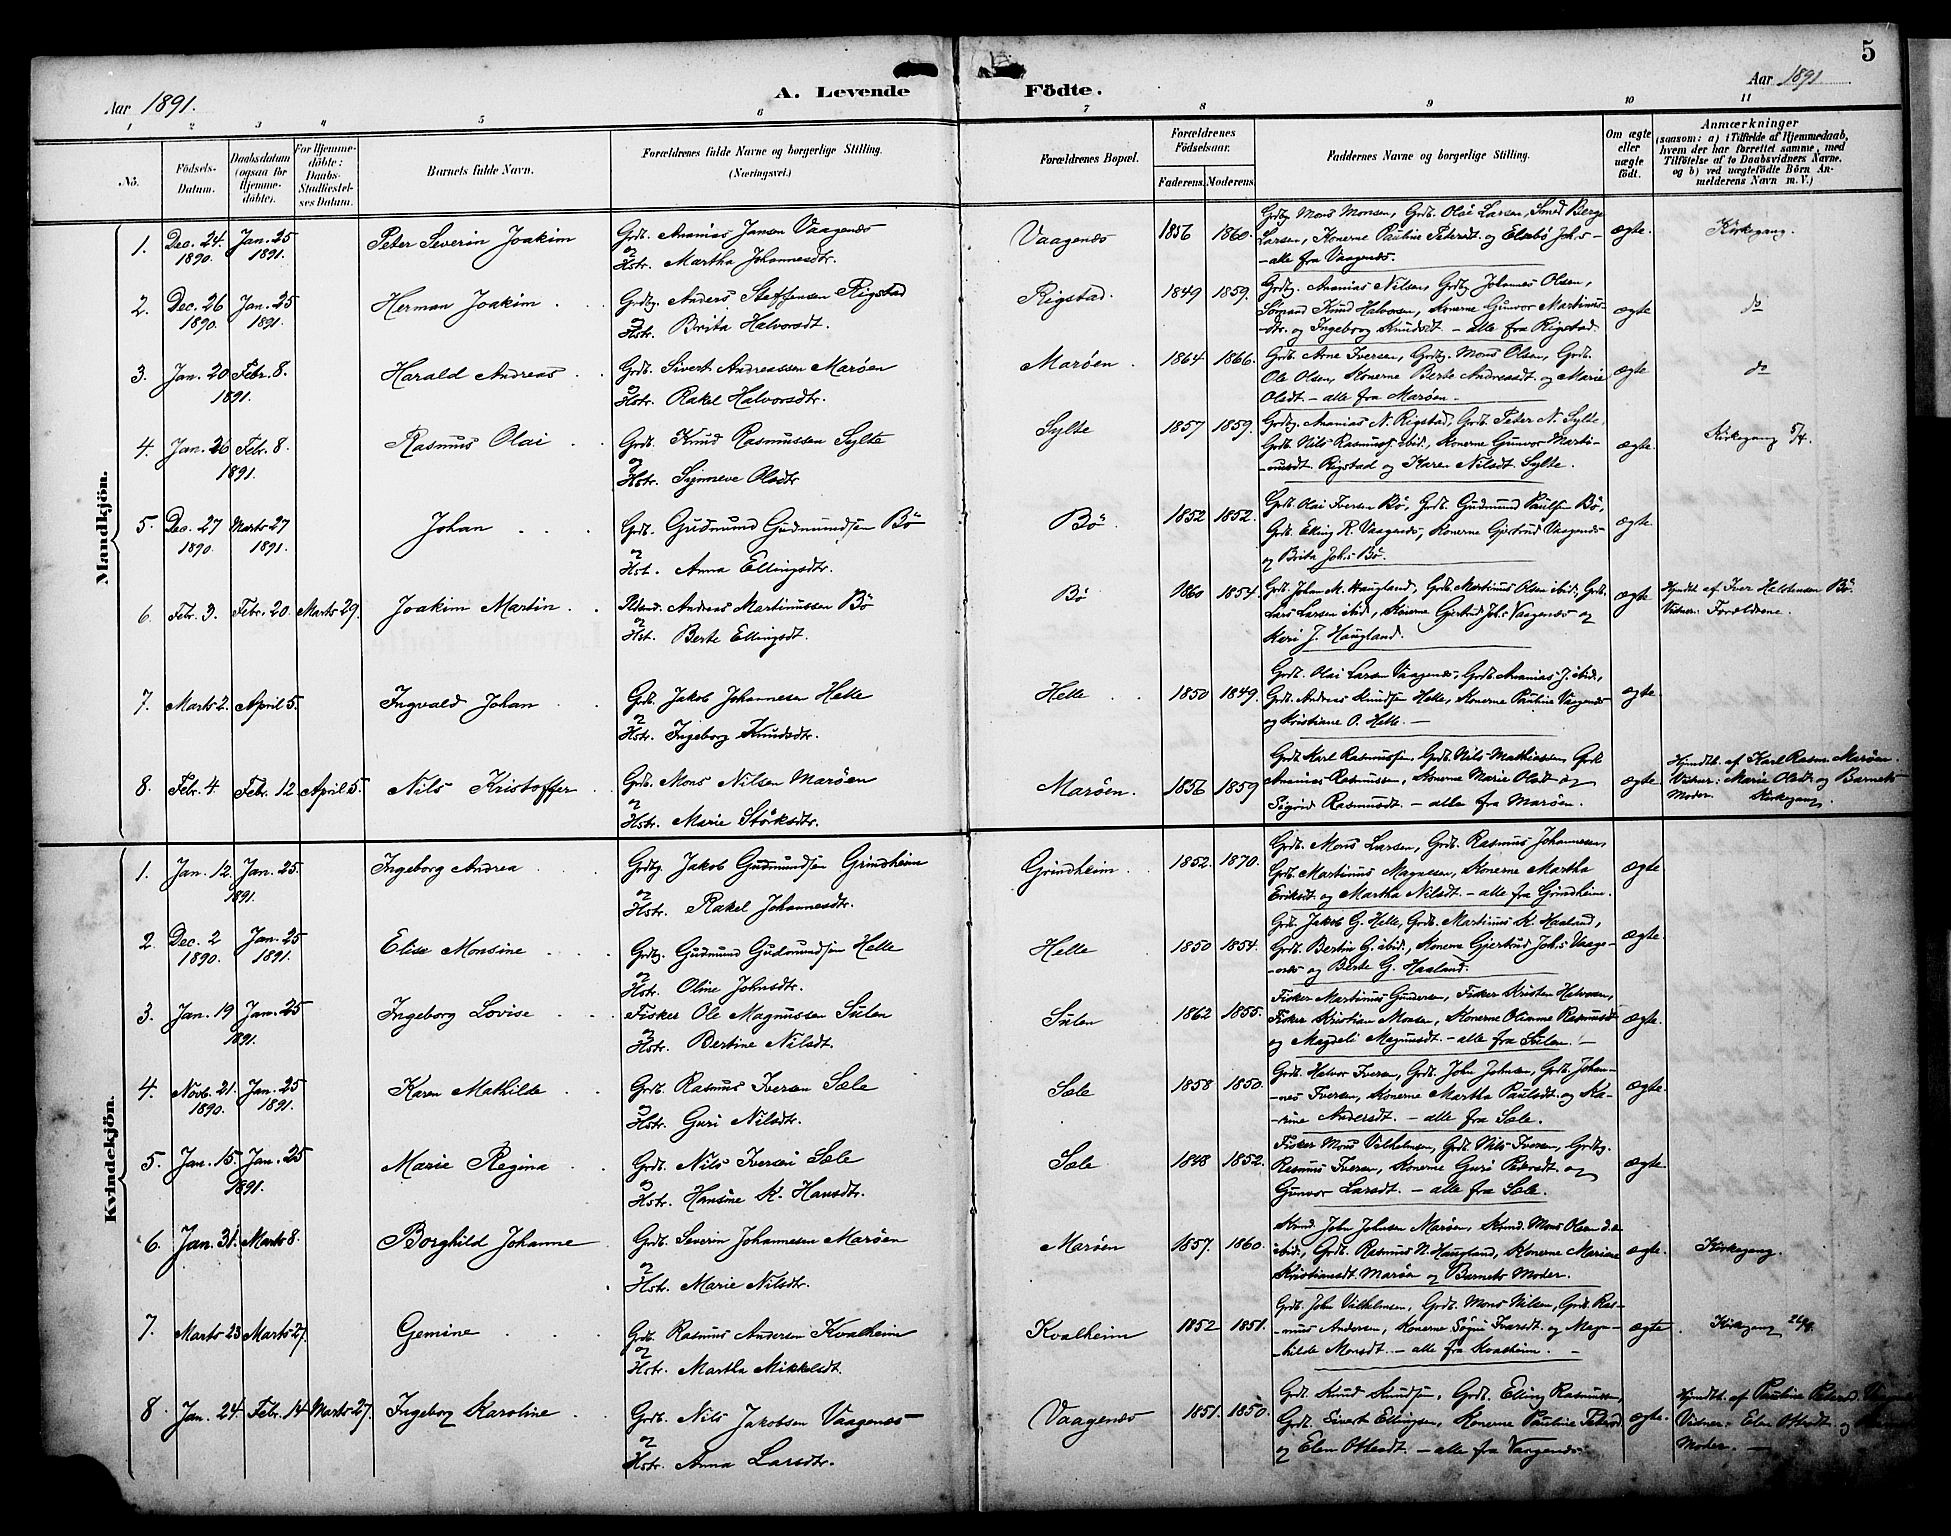 5
Aar 1891.
A. Levende Födte.
Aar 1891
1 2 3 4 5 6 7 8 9 10 11
No.
Födsels-Datum.
Daabsdatum (ogsaa for Hjemme-döbte).
For Hjemme-döbte: Daabs-Stadfæstel-ses Datum.
Barnets fulde Navn.
Forældrenes fulde Navne og borgerlige Stilling. (Næringsvei.)
Forældrenes Bopæl.
Forældrenes Födselsaar.
Faderens. Moderens.
Faddernes Navne og borgerlige Stilling.
Om ægte eller uægte födt.
Anmærkninger
(saasom: a) i Tilfælde af Hjemmedaab, hvem der har forrettet samme, med Tilföielse af to Daabsvidners Navne, og b) ved uægtefödte Börn An-melderens Navn m. V.)
Mandkjön.
1. Dec. 24. 1890. Jan. 25 1891. Peter Severin Joakim
Grdb. Ananias Jansen Vaagenes
og Hstr. Martha Johannesdtr.
Vaagenes 1856 1860.
Grdbg. Mons Monsen, Grdb. Olai Larsen, Smed Berge
Larsen, Konerne Pauline Petersdt. og Elsebö Joh.s-
-alle fra Vaagenes.
ægte. Kirkegang.
2. Dec. 26 1890. Jan. 25 1891. Herman Joakim
Grdbg. Anders Steffensen Rigstad
og Hstr. Brita Halvorsdt.
Rigstad. 1849 1859.
Grdbg. Ananias Nilsen, Grdbg. Johannes Olsen,
Sömand Knud Halvorsen, Konerne Gunvor Martinus-
-dtr. og Ingeborg Knudsdt. - alle fra Rigstad.
ægte do
3. Jan. 20 Febr. 8. 1891. Harald Andreas
Grdb. Sivert Andreassen Maröen
og Hstr. Rakel Halvorsdtr.
Maröen. 1864 1866.
Grdb. Arne Iversen, Grdbg. Mons Olsen, Grdb.
Ole Olsen, Konerne Berte Andreasdt. og Marie
Olsdt. - alle fra Maröen.
ægte do
4. Jan. 26 Febr. 8. 1891. Rasmus Olai
Grdb. Knud Rasmussen Sylte
og Hstr. Synneve Olsdtr
Sylte 1857 1859.
Grdbg. Ananias N. Rigstad, Grdb. Peter N. Sylte,
Grdb. Nils Rasmuss. ibid., Konerne Gunvor Marti-
-nusdt. Rigstad og Karen Nilsdt. Sylte.
ægte. Kirkegang 5/4.
5. Dec. 27 1890. Marts 27 1891. Johan
Grdb. Gudmund Gudmundsen Bö
og Hst. Anna Ellingsdtr.
Bö. 1852 1852.
Grdb. Olai Iversen Bö, Grdb. Gudmund Paulsen Bö,
Grdb. Elling R. Vaagenes, Konerne Gjertrud Vaagenes
og Brita Joh.s Bö.
ægte
6. Febr. 3. Febr. 20 Marts 29. Joakim Martin
Andreas Martinussen Bö
og Hst. Berte Ellingsdt.
Bö 1860 1854.
Grdb. Johan M. Haugland, Grdb. Martinus Olsen ibid., Grdb.
Lars Larsen ibid., Konerne Gjertrud Joh.s Vaagenes og
Keri J. Haugland.
ægte
Hjmdt. af Iver Helstensen Bö.
Vidner: Forældrene.
7. Marts 2. April 5. Ingvald Johan
Grdb. Jakob Johannesen Helle
og Hstr. Ingeborg Knudsdtr.
Helle 1850 1849.
Grdb. Olai Larsen Vaagenes, Grdb. Ananias J. ibid.,
Grdb. Andreas Knudsen Helle, Konerne Pauline Vaagenes
og Kristiane O. Helle. -
ægte
8. Febr. 4 Febr. 12 April 5. Nils Kristoffer
Grdb. Mons Nilsen Maröen
og Hstr. Marie Störksdtr.
Maröen. 1856 1859
Grdb. Karl Rasmussen, Grdb. Nils Mathiassen, Grdb.
Ananias Rasmussen, Konerne Marie Olsdt. og
Sigrid Rasmusdt. - alle fra Maröen.
ægte
Hjmdt. af Karl Rasm. Maröen.
Vidner: Marie Olsdt. og Barnets
Moder. Kirkegang.
Kvindekjön.
1. Jan. 12. Jan. 25. 1891. Ingeborg Andrea
Grdbg. Jakob Gudmundsen Grindheim
og Hstr. Rakel Johannesdtr.
Grindheim. 1852. 1870.
Grdb. Mons Larsen, Grdb. Rasmus Johannesen,
Grdb. Martinus Magnssen, Konerne Martha
Eriksdt. og Martha Nilsdt. - alle fra Grindheim.
ægte
2. Dec. 2 1890. Jan. 25 1891. Elise Monsine
Grdbg. Gudmund Gudmundsen Helle
og Hstr. Oline Johnsdtr.
Helle 1850 1854.
Grdb. Jakob G. Helle, Grdb. Martinus K. Haaland,
Grdb. Bertin G. ibid., Konerne Gjertrud Joh.s Vaage-
-nes og Berte G. Haaland.
ægte.
3. Jan. 19 Jan. 25 1891. Ingeborg Lovise
Fisker Ole Magnussen Sulen
og Hstr. Bertine Nilsdt.
Sulen 1862 1855.
Fisker Martinus Gundersen, Fisker Kristen Halvorsen,
Fisker Kristian Monsen, Konerne Olimme Rasmusdt
og Magdeli Magnusdt. - alle fra Sulen. -
ægte.
4. Novb. 21. 1890. Jan. 25 1891. Karen Mathilde
Grdb. Rasmus Iversen Sæle
og Hstr. Guri Nilsdt.
Sæle 1858 1850.
Grdb. Halvor Iversen, Grdb. John Johnsen, Grdb. Johan-
-nes Iversen, Konerne Martha Paulsdt. og Ka-
-rine Andersdt. - alle fra Sæle.
ægte.
5. Jan. 15. Jan. 25 1891. Marie Regina
Grdb. Nils Iversen Sæle
og Hstr. Hansine K. Hansdtr.
Sæle 1848 1852.
Fisker Mons Vilhelmsen, Grdb. Nils Iversen, Grdbg.
Rasmus Iversen, Konerne Guri Pedersdt. og
Gunvor Larsdt. - alle fra Sæle.
ægte.
6. Jan. 31. Marts 8. Borghild Johanne
Grdb. Severin Johannesen Maröen
og Hstr. Marie Nilsdtr.
Maröen 1857. 1860.
John Johnsen Maröen, Mons Olsen
ibid., Grdb. Rasmus N. Haugland, Konerne Mariane
Kristiansdt Maröen og Barnets Moder.
ægte. Kirkegang.
7. Marts 23 Marts 27. Gemine
Grdb. Rasmus Andersen Kvalheim
og Hstr. Martha Mikkelsdt.
Kvalheim 1852 1851.
Grdb. John Vilhelmsen, Grdb. Mons Nilsen, Grdb. Ras-
-mus Andersen, Konerne Sögni Ivarsdt. og Magn-
-hilde Monsdt. - alle fra Kvalheim. -
ægte. Kirkegang
8 Jan. 24. Febr. 14 Marts 27. Ingeborg Karoline
Grdb. Nils Jakobsen Vaagenes
og Hstr. Anna Larsdtr.
Vaagenes 1851. 1850.
Grdb. Knud Knudsen, Grdb. Elling Rasmussen,
Grdb. Sivert Ellingsen, Konerne Pauline Petersd.
og Elen Ottesdt. - alle fra Vaagenes.
ægte.
Hjmdt. af Pauline Petersd.
Vidner: Elen Ottesdt. og
Moder. -